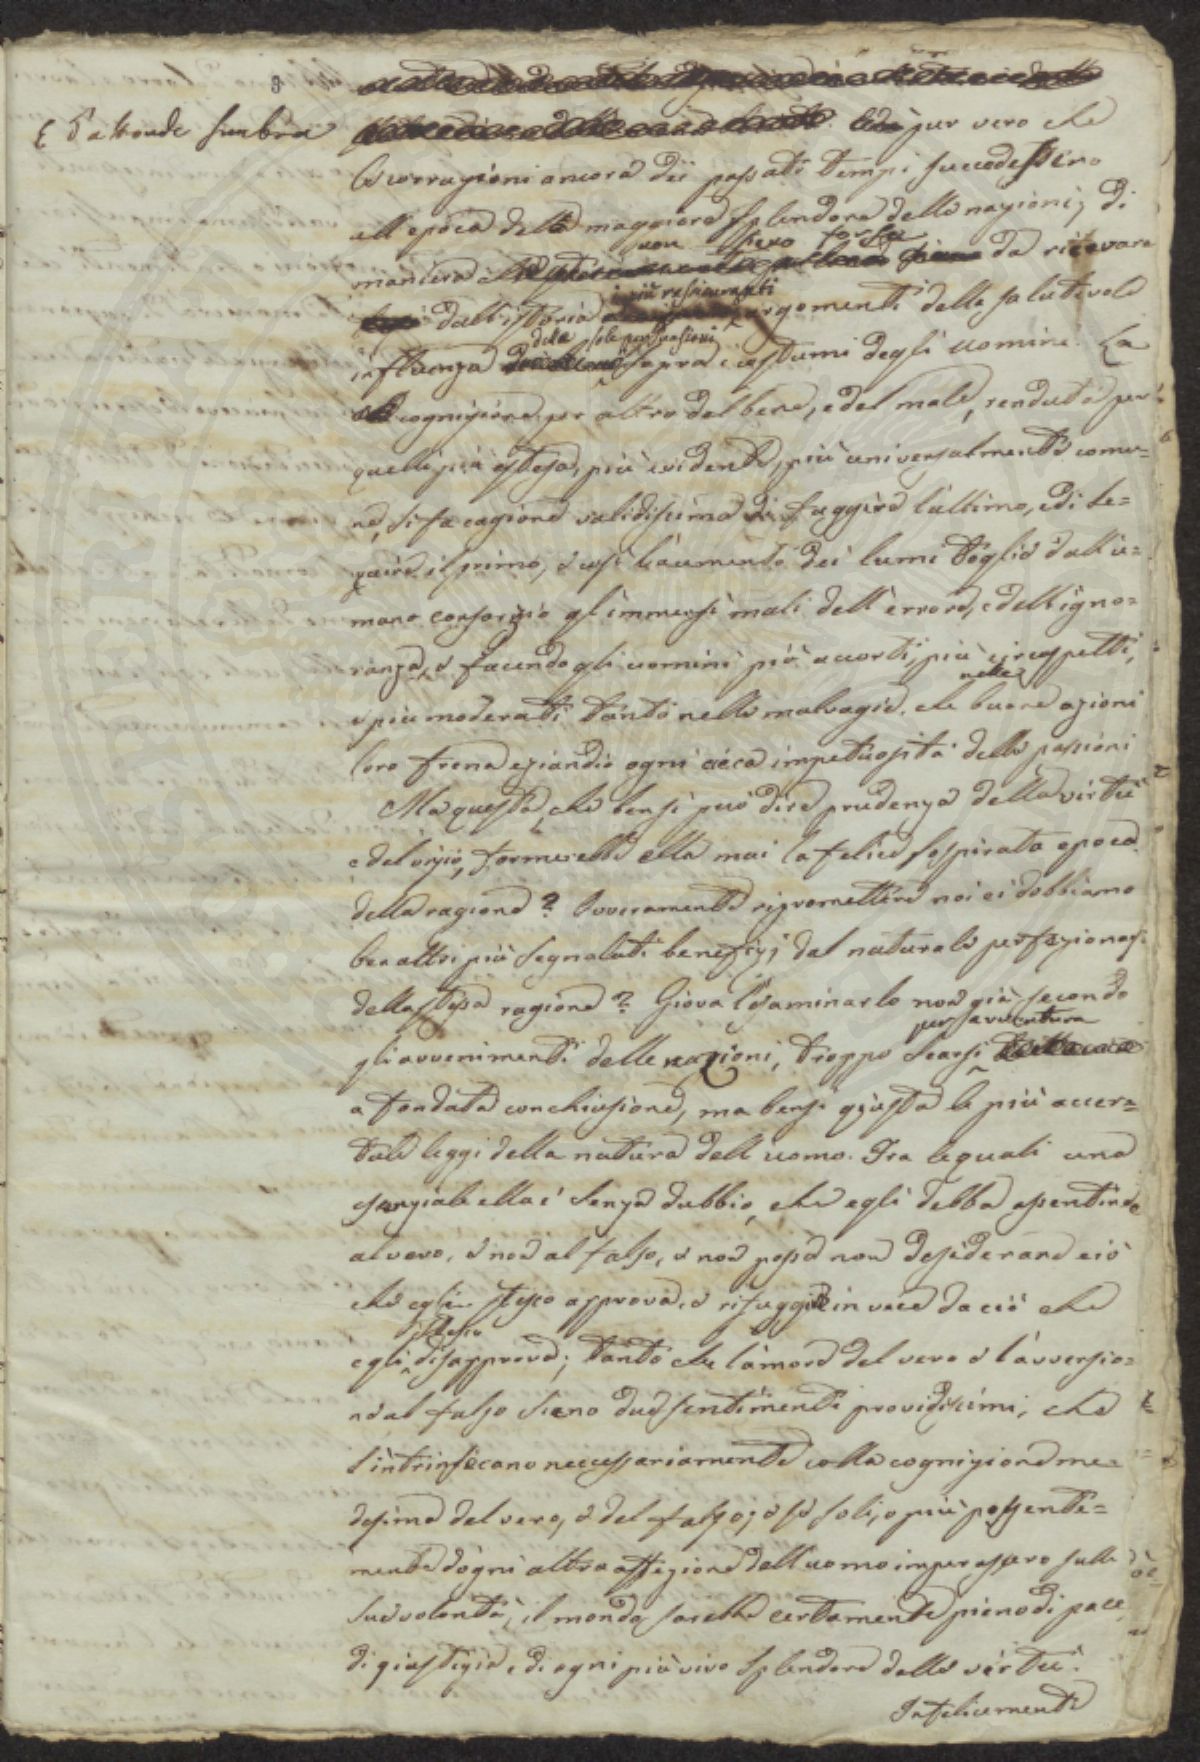 E d'altronde sembra
pur vero che
le corruzioni ancora dei passati tempi succedessero
all'epoca della maggiore splendore delle nazioni; di
non sono forse
maniera da ricavare
i più rassicuranti
dall'istoria argomenti della salutevole
delle sole persuasioni
influenza sopra i costumi degli uomini. La
cognizione per altro del bene, e del male, renduta per
quelli più estesa, più evidente, più universalmente comu-
ne, si fa cagione validissima di fuggire l'ultimo, e di se-
guire il primo, e così l'aumento dei lumi toglie dall'u-
mano consorzio gl'immensi mali dell'errore, e dell'igno-
ranza, e facendo gli uomini più accorti, più circospetti,
nelle
e più moderati tanto nelle malvagie, che buone azioni
loro frena eziandio ogni cieca impetuosità delle passioni
Ma questa, che bensì può dire prudenza della virtù
e del vizio, formerebbe ella mai la felice sospirata epoca
della ragione? Ovveramente ripromettere noi ci dobbiamo
ben altri più segnalati benefizj dal naturale perfezionarsi
della stessa ragione? Giova l'esaminarlo non già secondo
per avventura
gli avvenimenti delle nazioni, troppo scarsi
a fondata conchiusione, ma bensì giusta le più accer-
tate leggi della natura dell'uomo. Fra le quali una
ella è senza dubbio, che egli debba assentire
al vero, e non al falso, e non possa non desiderare ciò
che egli stesso approva, e rifuggire in vece da ciò che
stesso
egli disapprova; tanto che l'amore del vero e l'avversio-
ne al falso sieno due sentimenti providissimi, che
s'intrinsecano necessariamente colla cognizione me-
desima del vero, e del falso; e se soli, o più possente-
mente d'ogni altra affezione dell'uomo imperassero sulle
sue volontà, il mondo sarebbe certamente pieno di pace
di giustizia, e di ogni più vivo splendore delle virtù.
Infelicemente